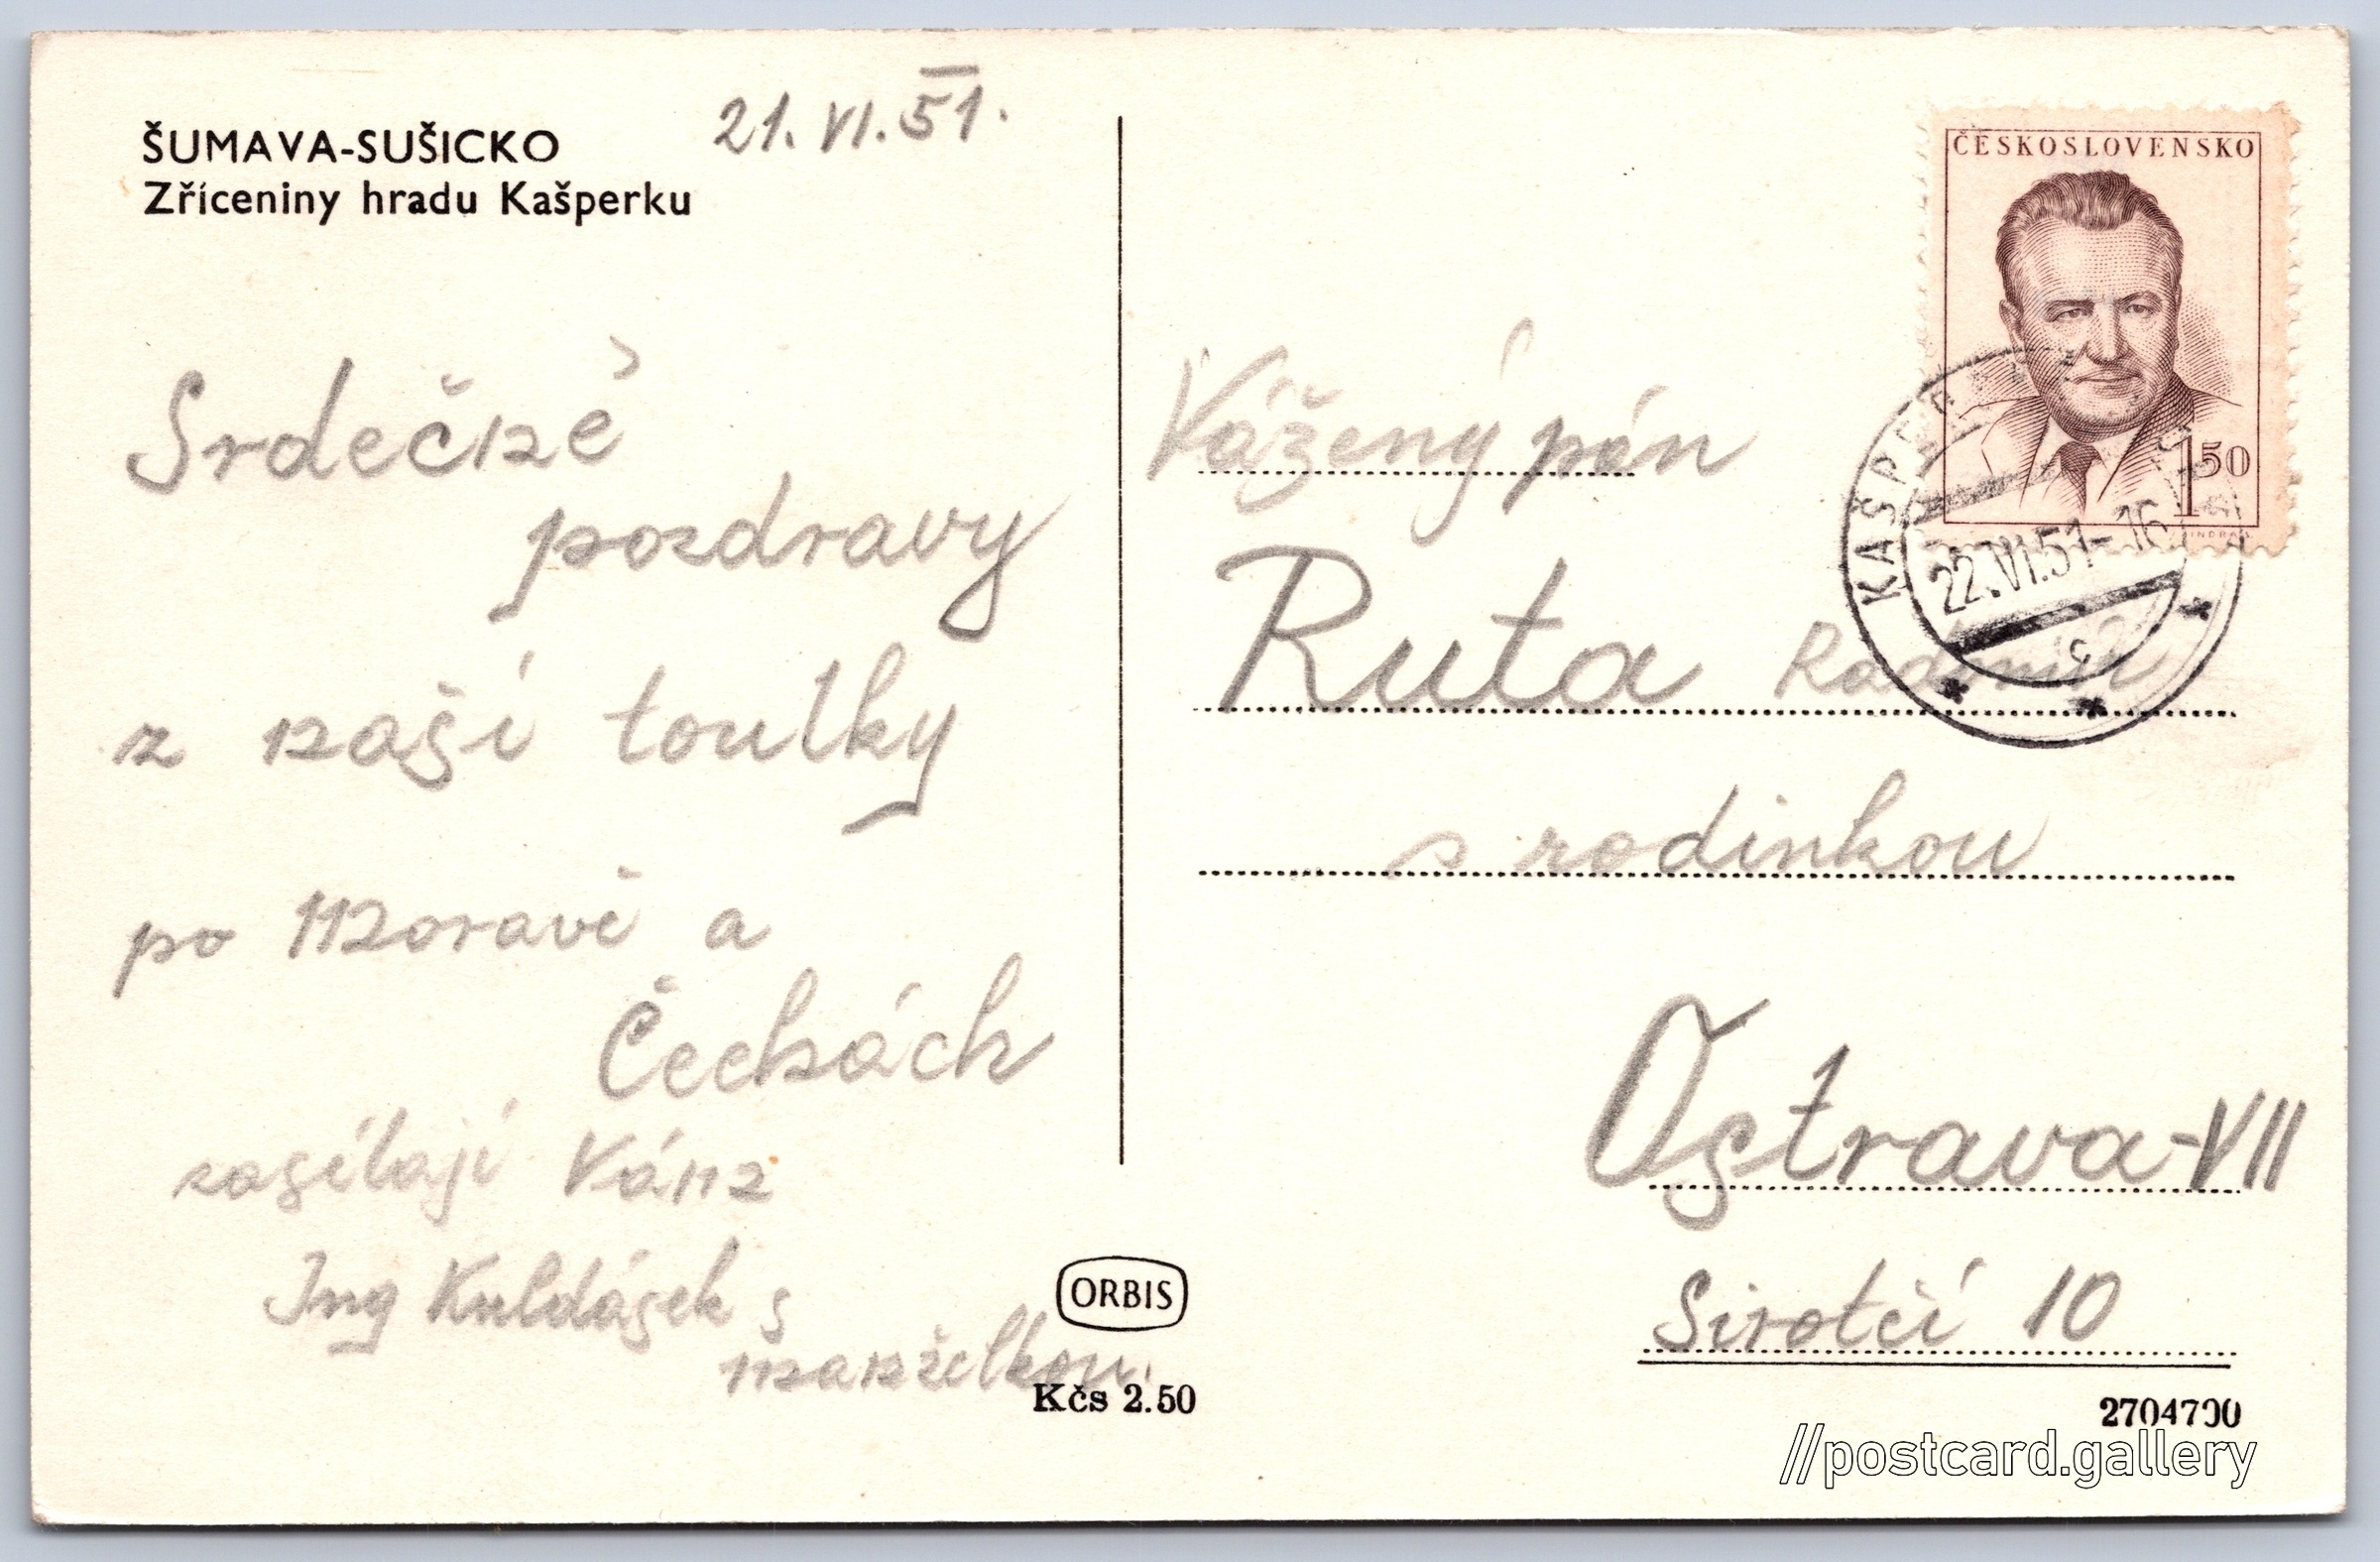 ŠUMAVA-SUŠICKO
Zříceniny hradu Kašperku
21. VI. 51.
Srdečné
pozdravy
z naší toulky
po Moravě a
Čechách
zasílají Vám
Ing Kuldásek s
manželkou.
ORBIS
Kčs 2.50
ČESKOSLOVENSKO
1 50
22.VI.51-16
c
Vážený pán
Ruta
s rodinkou
Ostrava-VII
Sirotčí 10
2704700
//postcard.gallery